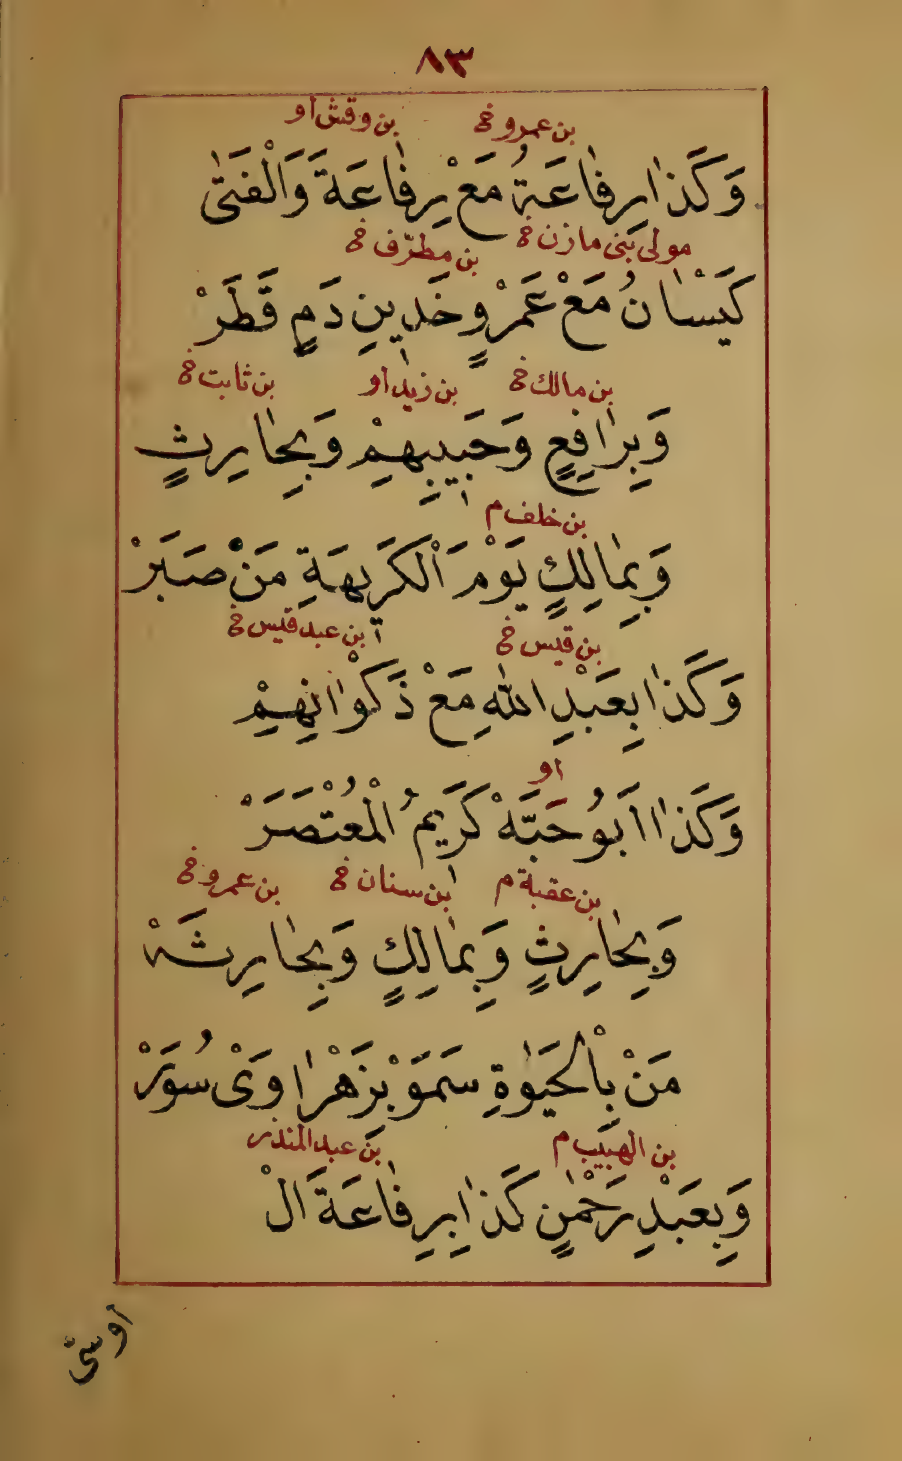 ٨٣
بن عمرو خ بن وقش او
وَكَذٰا رِفٰاعَةُ مَعْ رِفٰاعَةَ وَالْفَتىٰ
مولى بنى مازن خ بن مطرّف خ
كَيْسٰانُ مَعْ عَمْرٍو خَدينِ دَمٍ قَطَرْ
بن مالك خ بن زيد او بن ثابت خ
وَبِرٰافِعٍ وَحَبيبِهِمْ وَبِحٰارِثٍ
بن خلف م
وَبِمٰالِكٍ يَوْمَ الْكَريهَةِ مَنْ صَبَرْ
بن قيس خ بن عبد قيس خ
وَكَذٰا بِعَبْدِ اللهِ مَعْ ذَكْوٰانِهِمْ
او
وَكَذٰا اَبُو حَبَّهْ كَريمُ الْمُعْتَصَرْ
بن عقبة م بن سنان خ بن عمرو خ
وَبِحٰارِثٍ وَبِمٰالِكٍ وَبِحٰارِثَهْ
مَنْ بِالْحَيٰوةِ سَمَوْا بِزَهْرٰاوَىْ سُوَرْ
بن الهبيب م بن عبد المنذر
وَبِعَبْدِ رَحْمٰنٍ كَذٰا بِرِفٰاعَةَ الْ
اوسىّ